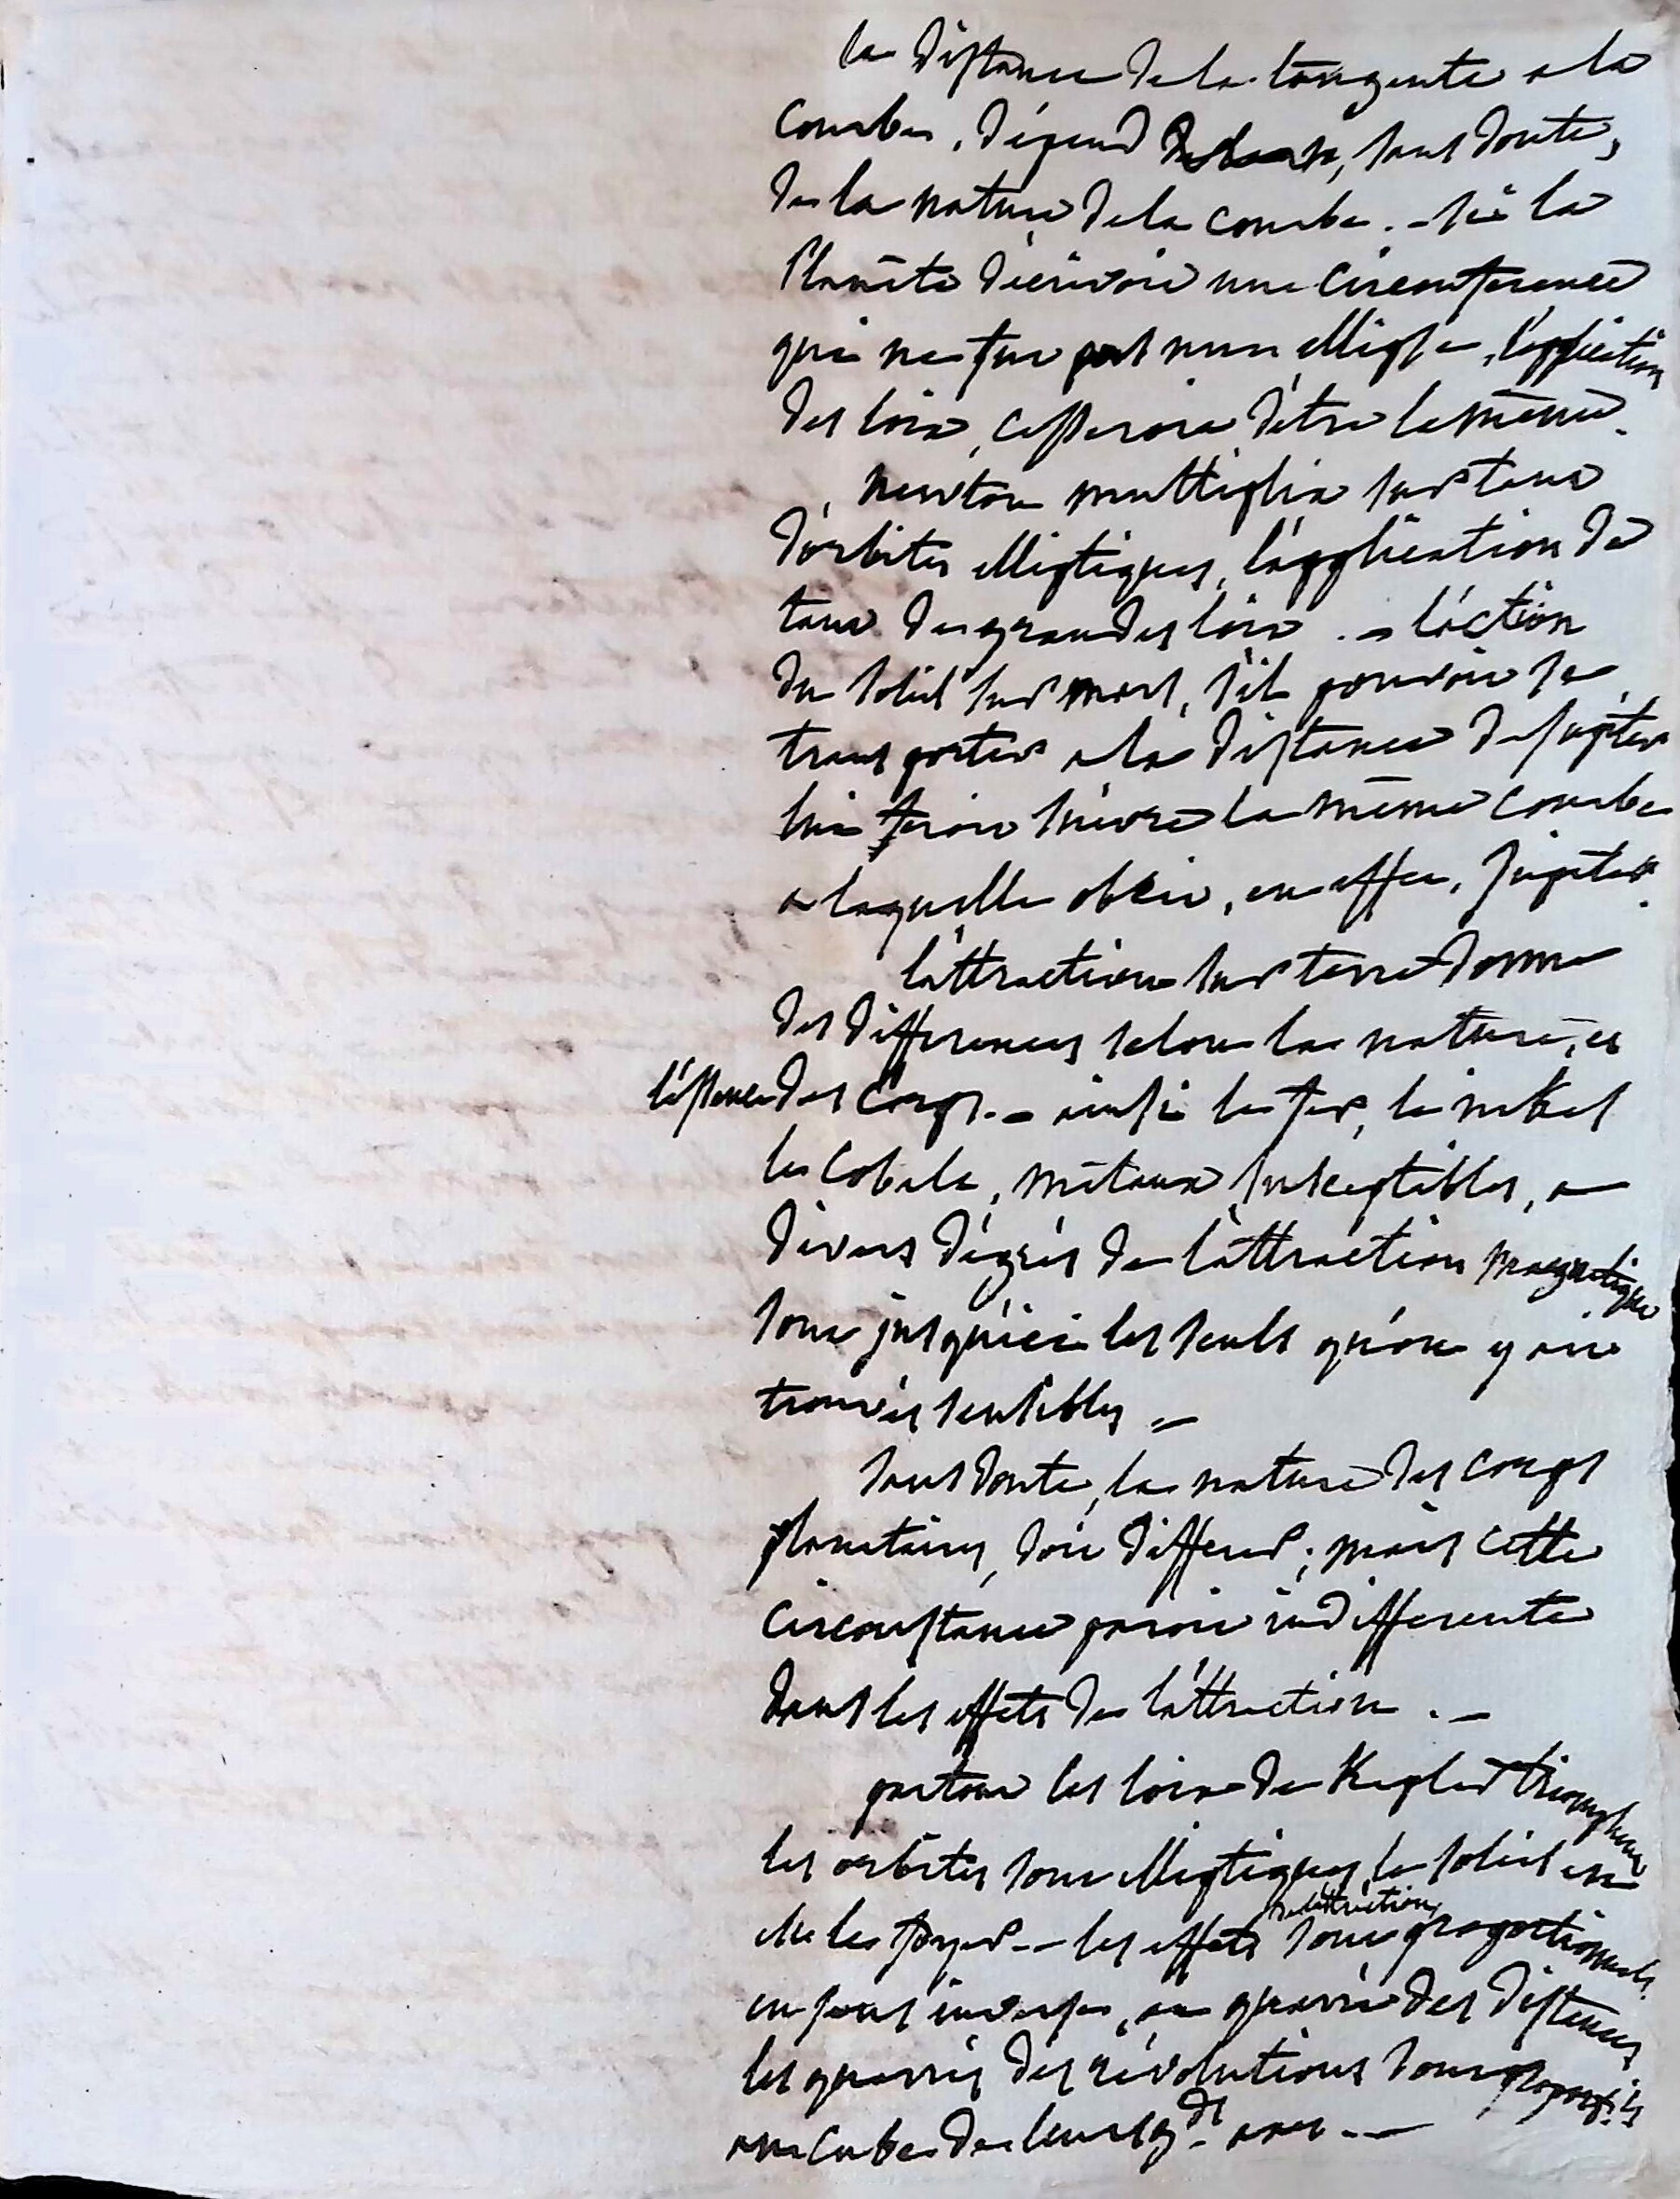 la distance de la tangente a la
courbe, dépend , sans doute,
de la nature de la courbe. - si la
Planète décrivoit une circonference
qui ne fut pas une ellipse, l'application
des loix, cesseroit d'être la même.
newton multiplia sur tant
d'orbites elliptiques, l'application de
tant de grandes loix. - l'action
du soleil sur mars, s'il pouvoit se
transporter a la distance de Jupiter
lui feroit suivre la même courbe
a laquelle obéit, en effet, Jupiter.
l'attraction sur terre donne
des differences selon la nature, et
l'essence des corps. - ainsi le fer, le nikel
le cobalt, métaux susceptibles, a
divers dégrés de l'attraction magnetique
sont jusqu'ici les seuls qu'on y ait
trouvés sensibles -
sans doute, la nature des corps
planetaires, doit differer; mais cette
circonstance paroit indifferente
dans les effets de l'attraction. -
partout les loix de Kepler triomphent
les orbites sont elliptiques, le soleil en
est le foyer - les effets de l'attraction, sont proportionnels
en sens inverse, au quarré des distances
les quarrés des révolutions sont proportis
aux cubes de leurs gds axes. -